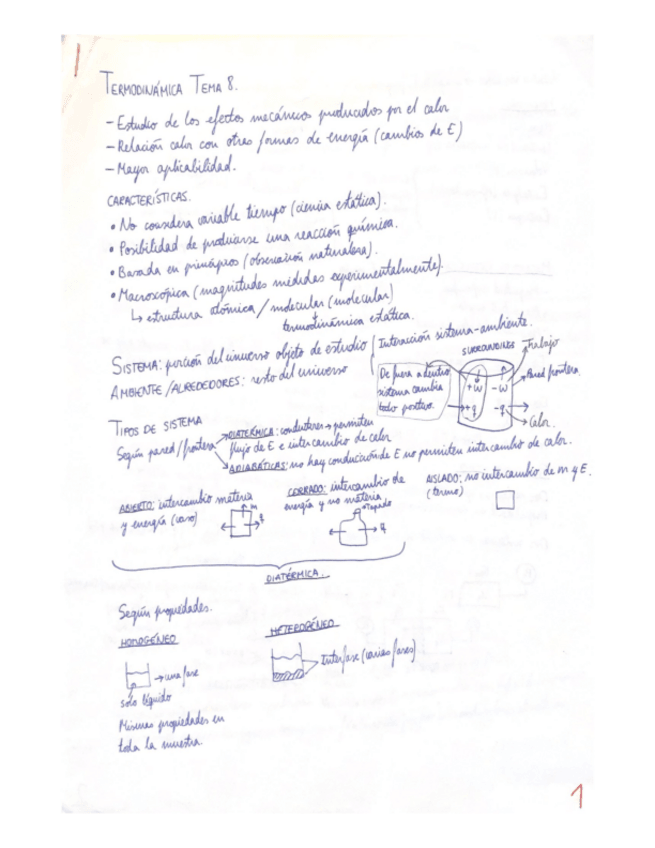 1
TERMODINÁMICA TEMA 8.
- Estudio de los efectos mecánicos producidos por el calor
- Relación calor con otras formas de energía (cambios de E)
- Mayor aplicabilidad.
CARACTERÍSTICAS.
• No considera variable tiempo (ciencia estática).
• Posibilidad de producirse una reacción química.
• Basada en principios (observación naturaleza).
• Macroscópica (magnitudes medidas experimentalmente).
↳ estructura atómica / molecular (molecular)
termodinámica estática.
SISTEMA: porción del universo objeto de estudio
AMBIENTE / ALREDEDORES: resto del universo
Interacción sistema-ambiente.
SURROUNDINGS
Trabajo
De fuera a dentro
sistema cambia
todo positivo.
+W -W
Pared frontera.
+q -q
Calor.
TIPOS DE SISTEMA
Según pared / frontera
DIATÉRMICA: conductores → permiten
flujo de E e intercambio de calor
ADIABÁTICAS: no hay conducción de E no permiten intercambio de calor.
ABIERTO: intercambio materia
y energía (vaso)
m
q
CERRADO: intercambio de
energía y no materia
Tapado
q
AISLADO: no intercambio de m y E.
(termo)
DIATÉRMICA.
Según propiedades.
HOMOGÉNEO
→ una fase
solo líquido
Mismas propiedades en
toda la muestra.
HETEROGÉNEO
Interfase (varias fases)
1